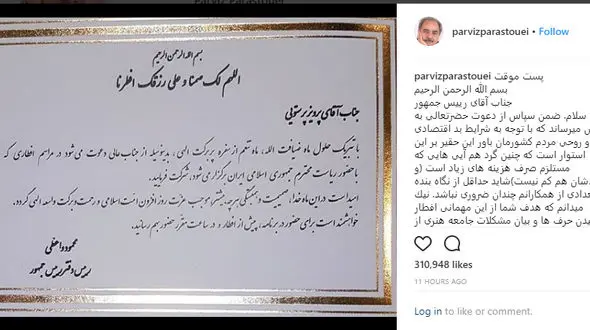 Parviz Parastouei
بسم الله الرحمن الرحیم
اللهم لک صمنا و علی رزقک افطرنا
جناب آقای پرویز پرستویی
با تبریک حلول ماه ضیافت الله، ماه تنعم از سفره پربرکت الهی، بدینوسیله از جناب عالی دعوت می‌شود در مراسم افطاری که
با حضور ریاست محترم جمهوری اسلامی ایران برگزار می‌شود، شرکت فرمایید.
امید است در این ماه خدا، صمیمیت و همبستگی هرچه بیشتر، موجب عزت روزافزون امت اسلامی و رحمت و برکت واسعه الهی گردد.
خواهشمند است برای حضور در برنامه، پیش از افطار و در ساعت مقرر حضور بهم رسانید.
محمود واعظی
رییس دفتر رییس جمهور
parvizparastouei • Follow
parvizparastouei پست موقت
بسم الله الرحمن الرحیم
جناب آقای رییس جمهور
سلام. ضمن سپاس از دعوت حضرتعالی به
می‌رساند که با توجه به شرایط بد اقتصادی
و روحی مردم کشورمان باور این حقیر بر این
استوار است که چنین گرد هم آیی هایی که
مستلزم صرف هزینه های زیاد است (و
شان هم کم نیست)شاید حداقل از نگاه بنده
عدادی از همکارانم چندان ضروری نباشد. نیک
میدانم که هدف شما از این مهمانی افطار
یدن حرف ها و بیان مشکلات جامعه هنری از
310,948 likes
11 HOURS AGO
Log in to like or comment.